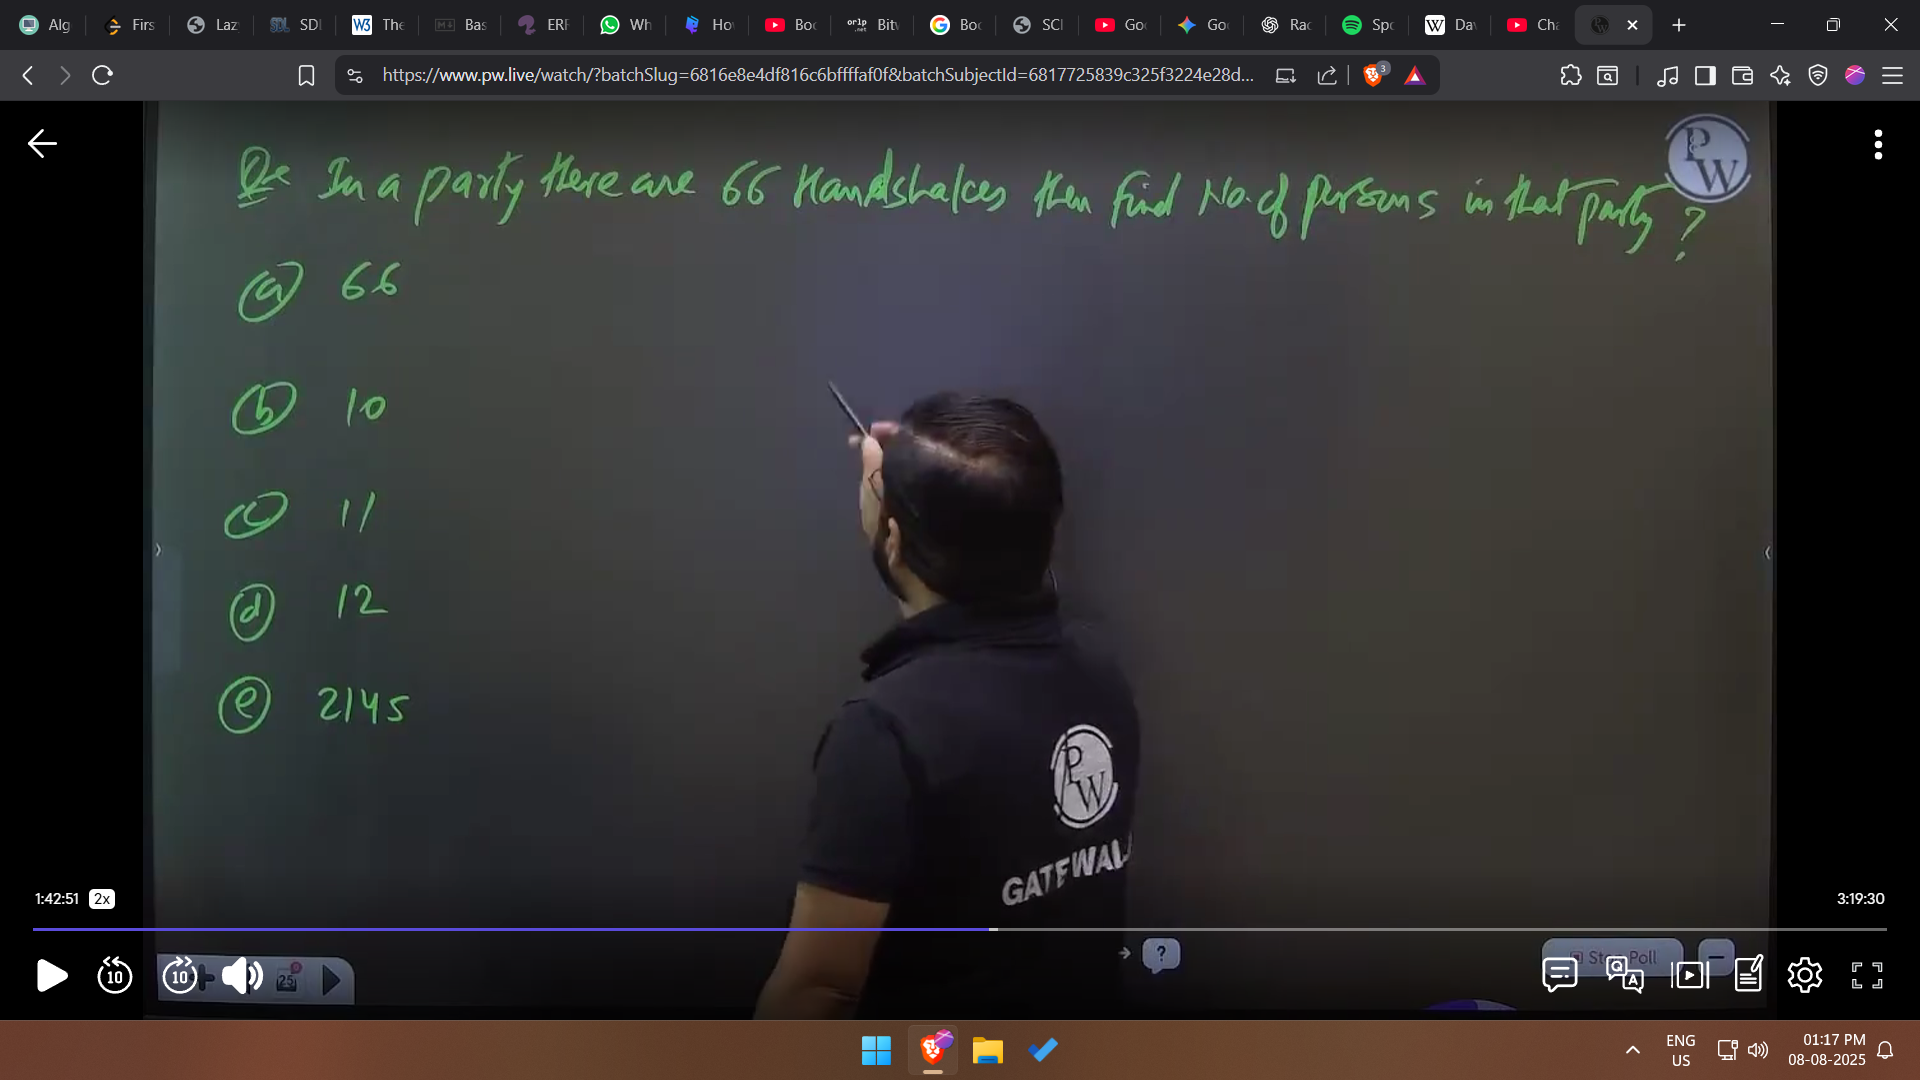 Alg
Firs
Laz
SDI
The
Bas
ERF
Wh
Hov
Boo
Bitv
Boo
SCI
Goo
Goo
Rac
Spo
Dav
Cha
https://www.pw.live/watch/?batchSlug=6816e8e4df816c6bffffaf0f&batchSubjectId=6817725839c325f3224e28d...
3
Qs In a party there are 66 Handshakes then find No. of persons in that party ?
PW
(a) 66
(b) 10
(c) 11
(d) 12
(e) 2145
PW
GATE WAL
1:42:51 2x
3:19:30
10
10
25
?
Stop Poll
ENG
US
01:17 PM
08-08-2025